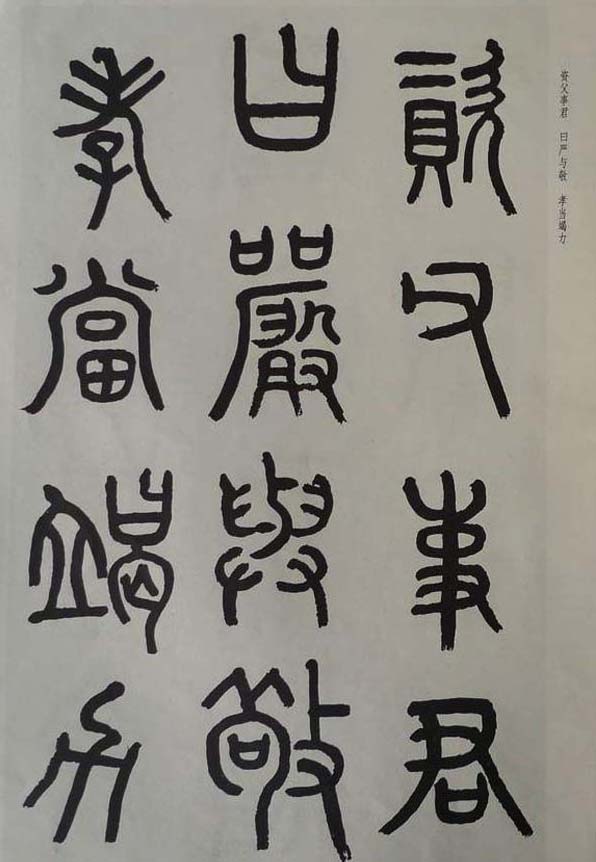 資父事君
曰嚴與敬
孝當竭力
资父事君 曰严与敬 孝当竭力